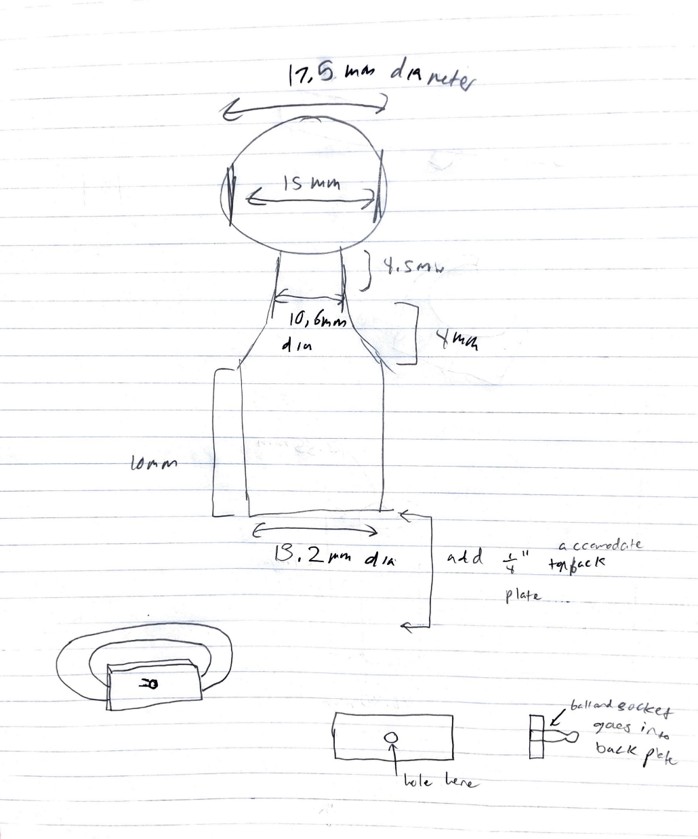 17.5 mm diameter
15 mm
4.5mm
10,6mm
dia
4mm
10mm
13.2 mm dia
add 1/4" accomodate
back
plate ....
ball and socket
goes into
back plate
hole here